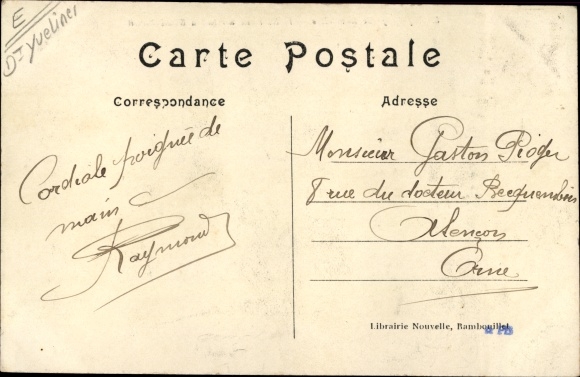 E
Dt Yvelines
Carte Postale
Correspondance
Adresse
Cordiale poignée de
main
Raymond
Monsieur Gaston Pioger
8 rue du docteur Becquembois
Alençon
Orne
Librairie Nouvelle, Rambouillet